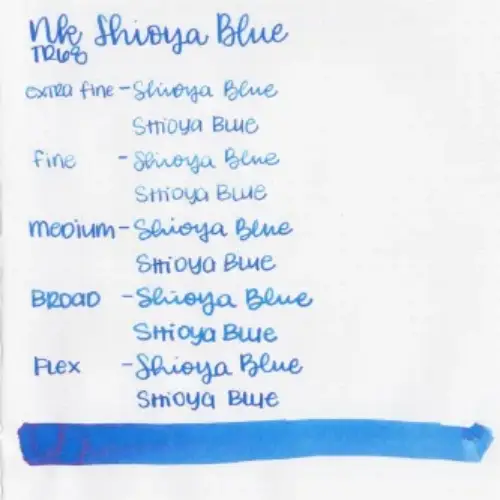 NK Shioya Blue
TR68
extra fine - Shioya Blue
Shioya Blue
fine - Shioya Blue
Shioya Blue
medium - Shioya Blue
Shioya Blue
BROAD - Shioya Blue
Shioya Blue
FLex - Shioya Blue
Shioya Blue